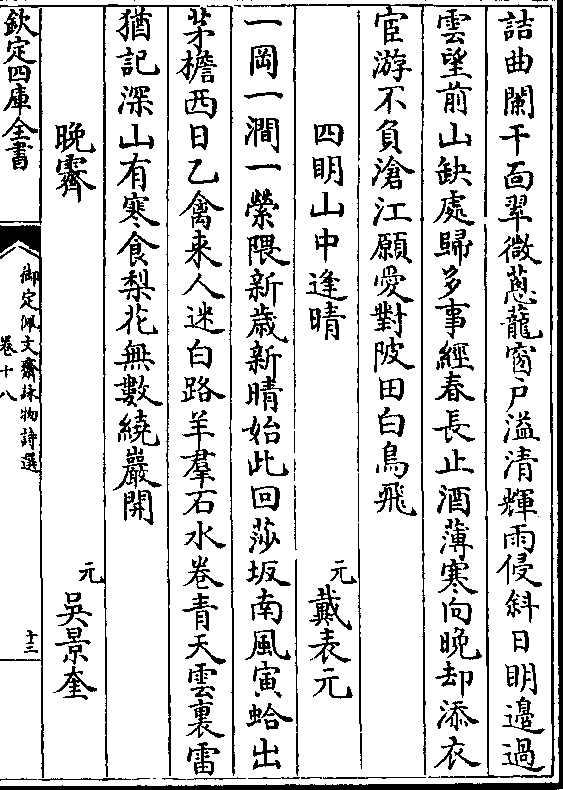 詰曲闌干面翠微蔥蘢窗戶溢清輝雨侵斜日明邊過
雲望前山缺處歸多事經春長止酒薄寒向晚却添衣
宦游不負滄江願愛對陂田白鳥飛
四明山中逢晴
元戴表元
一岡一澗一縈隈新歲新晴始此回莎坂南風寅蛤出
茅檐西日乙禽来人迷白路羊羣石水卷青天雲裏雷
猶記深山有寒食梨花無數繞巖開
晚霽
元吳景奎
欽定四庫全書
御定佩文齋詠物詩選
卷十八
十三